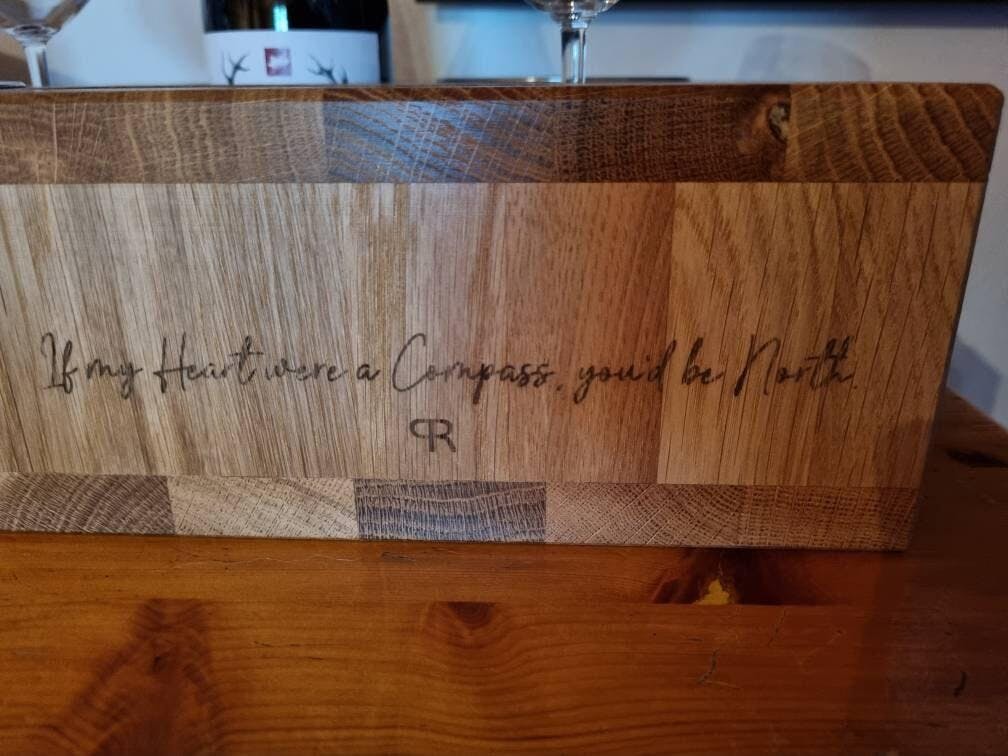 If my Heart were a Compass, you'd be North.
PR